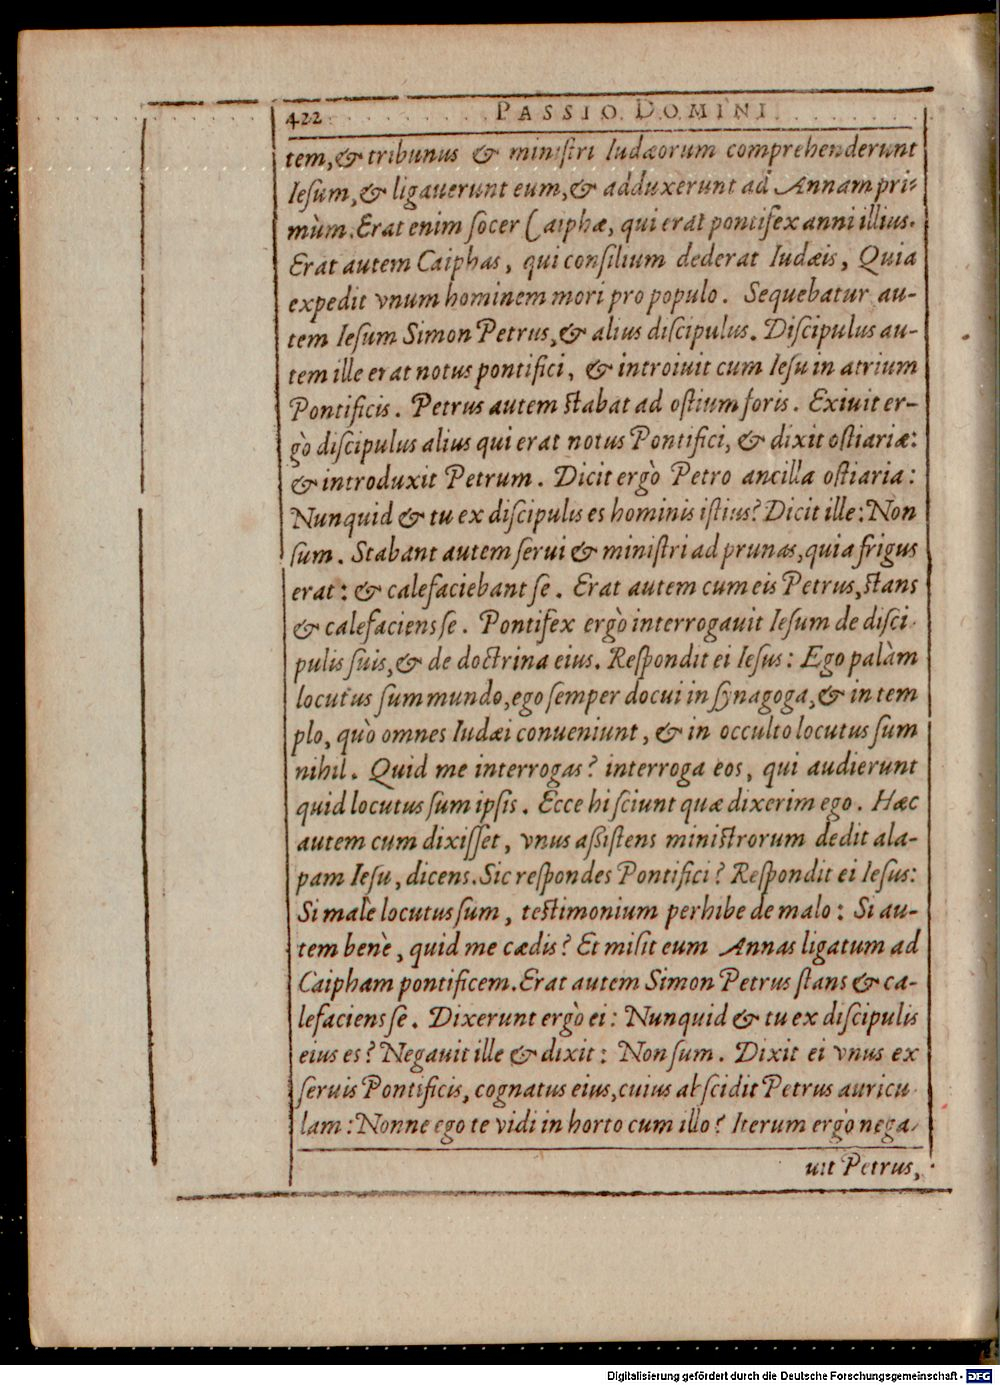 422 PASSIO DOMINI
tem, & tribunus & ministri Iudæorum comprehenderunt
Iesum, & ligauerunt eum, & adduxerunt ad Annam pri-
mùm. Erat enim socer Caiphæ, qui erat pontifex anni illius.
Erat autem Caiphas, qui consilium dederat Iudæis, Quia
expedit vnum hominem mori pro populo. Sequebatur au-
tem Iesum Simon Petrus, & alius discipulus. Discipulus au-
tem ille erat notus pontifici, & introiuit cum Iesu in atrium
Pontificis. Petrus autem stabat ad ostium foris. Exiuit er-
gò discipulus alius qui erat notus Pontifici, & dixit ostiariæ:
& introduxit Petrum. Dicit ergò Petro ancilla ostiaria:
Nunquid & tu ex discipulis es hominis istius? Dicit ille: Non
sum. Stabant autem serui & ministri ad prunas, quia frigus
erat: & calefaciebant se. Erat autem cum eis Petrus, stans
& calefaciens se. Pontifex ergò interrogauit Iesum de disci-
pulis suis, & de doctrina eius. Respondit ei Iesus: Ego palàm
locutus sum mundo, ego semper docui in synagoga, & in tem
plo, quò omnes Iudæi conueniunt, & in occulto locutus sum
nihil. Quid me interrogas? interroga eos, qui audierunt
quid locutus sum ipsis. Ecce hi sciunt quæ dixerim ego. Hæc
autem cum dixisset, vnus assistens ministrorum dedit ala-
pam Iesu, dicens. Sic respondes Pontifici? Respondit ei Iesus:
Si malè locutus sum, testimonium perhibe de malo: Si au-
tem benè, quid me cædis? Et misit eum Annas ligatum ad
Caipham pontificem. Erat autem Simon Petrus stans & ca-
lefaciens se. Dixerunt ergò ei: Nunquid & tu ex discipulis
eius es? Negauit ille & dixit: Non sum. Dixit ei vnus ex
seruis Pontificis, cognatus eius, cuius abscidit Petrus auricu-
lam: Nonne ego te vidi in horto cum illo? Iterum ergò nega-
uit Petrus,
Digitalisierung gefördert durch die Deutsche Forschungsgemeinschaft - DFG